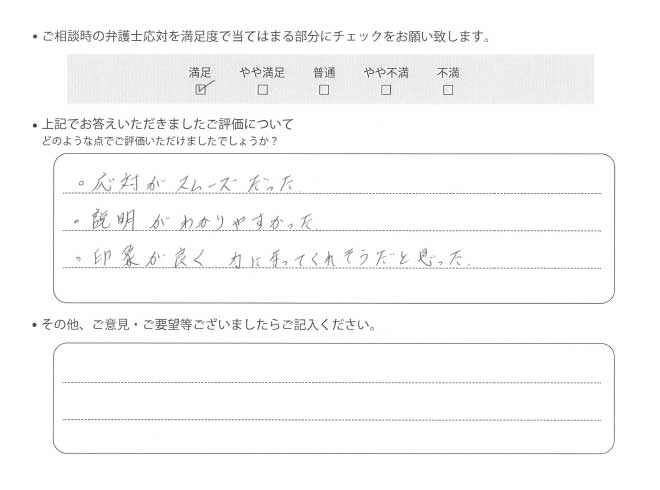 • ご相談時の弁護士応対を満足度で当てはまる部分にチェックをお願い致します。
満足 やや満足 普通 やや不満 不満
☑ ☐ ☐ ☐ ☐
• 上記でお答えいただきましたご評価について
どのような点でご評価いただけましたでしょうか？
。応対がスムーズだった.
。説明がわかりやすかった
。印象が良く 力になってくれそうだと思った.
• その他、ご意見・ご要望等ございましたらご記入ください。